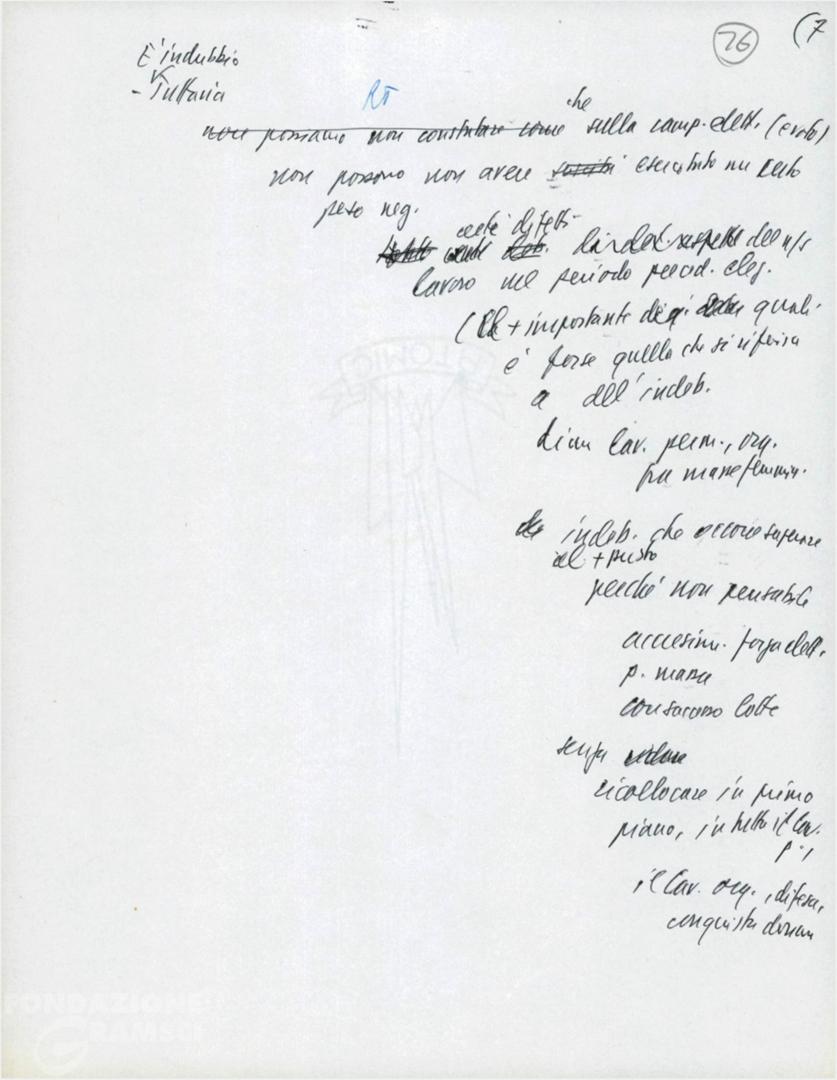 76
(7
È indubbio
- Tuttavia
RT
che
non possiamo non constatare come sulla camp. elett. (e voto)
non possono non avere esercitato un certo
peso neg.
certi difetti
lavoro nel periodo preced. elez.
(+ importante dei quali
è forse quello che si riferiva
a dell'indeb.
di un lav. perm., org.
fra masse femmin.
indeb. che occorre superare
al + presto
perché non pensabile
accrescim. forza elett.
p. massa
con successo lotte
senza
ricollocare in primo
piano, in tutto il lav.
p.,
il lav. org., difesa,
conquista donne
FONDAZIONE
GRAMSCI